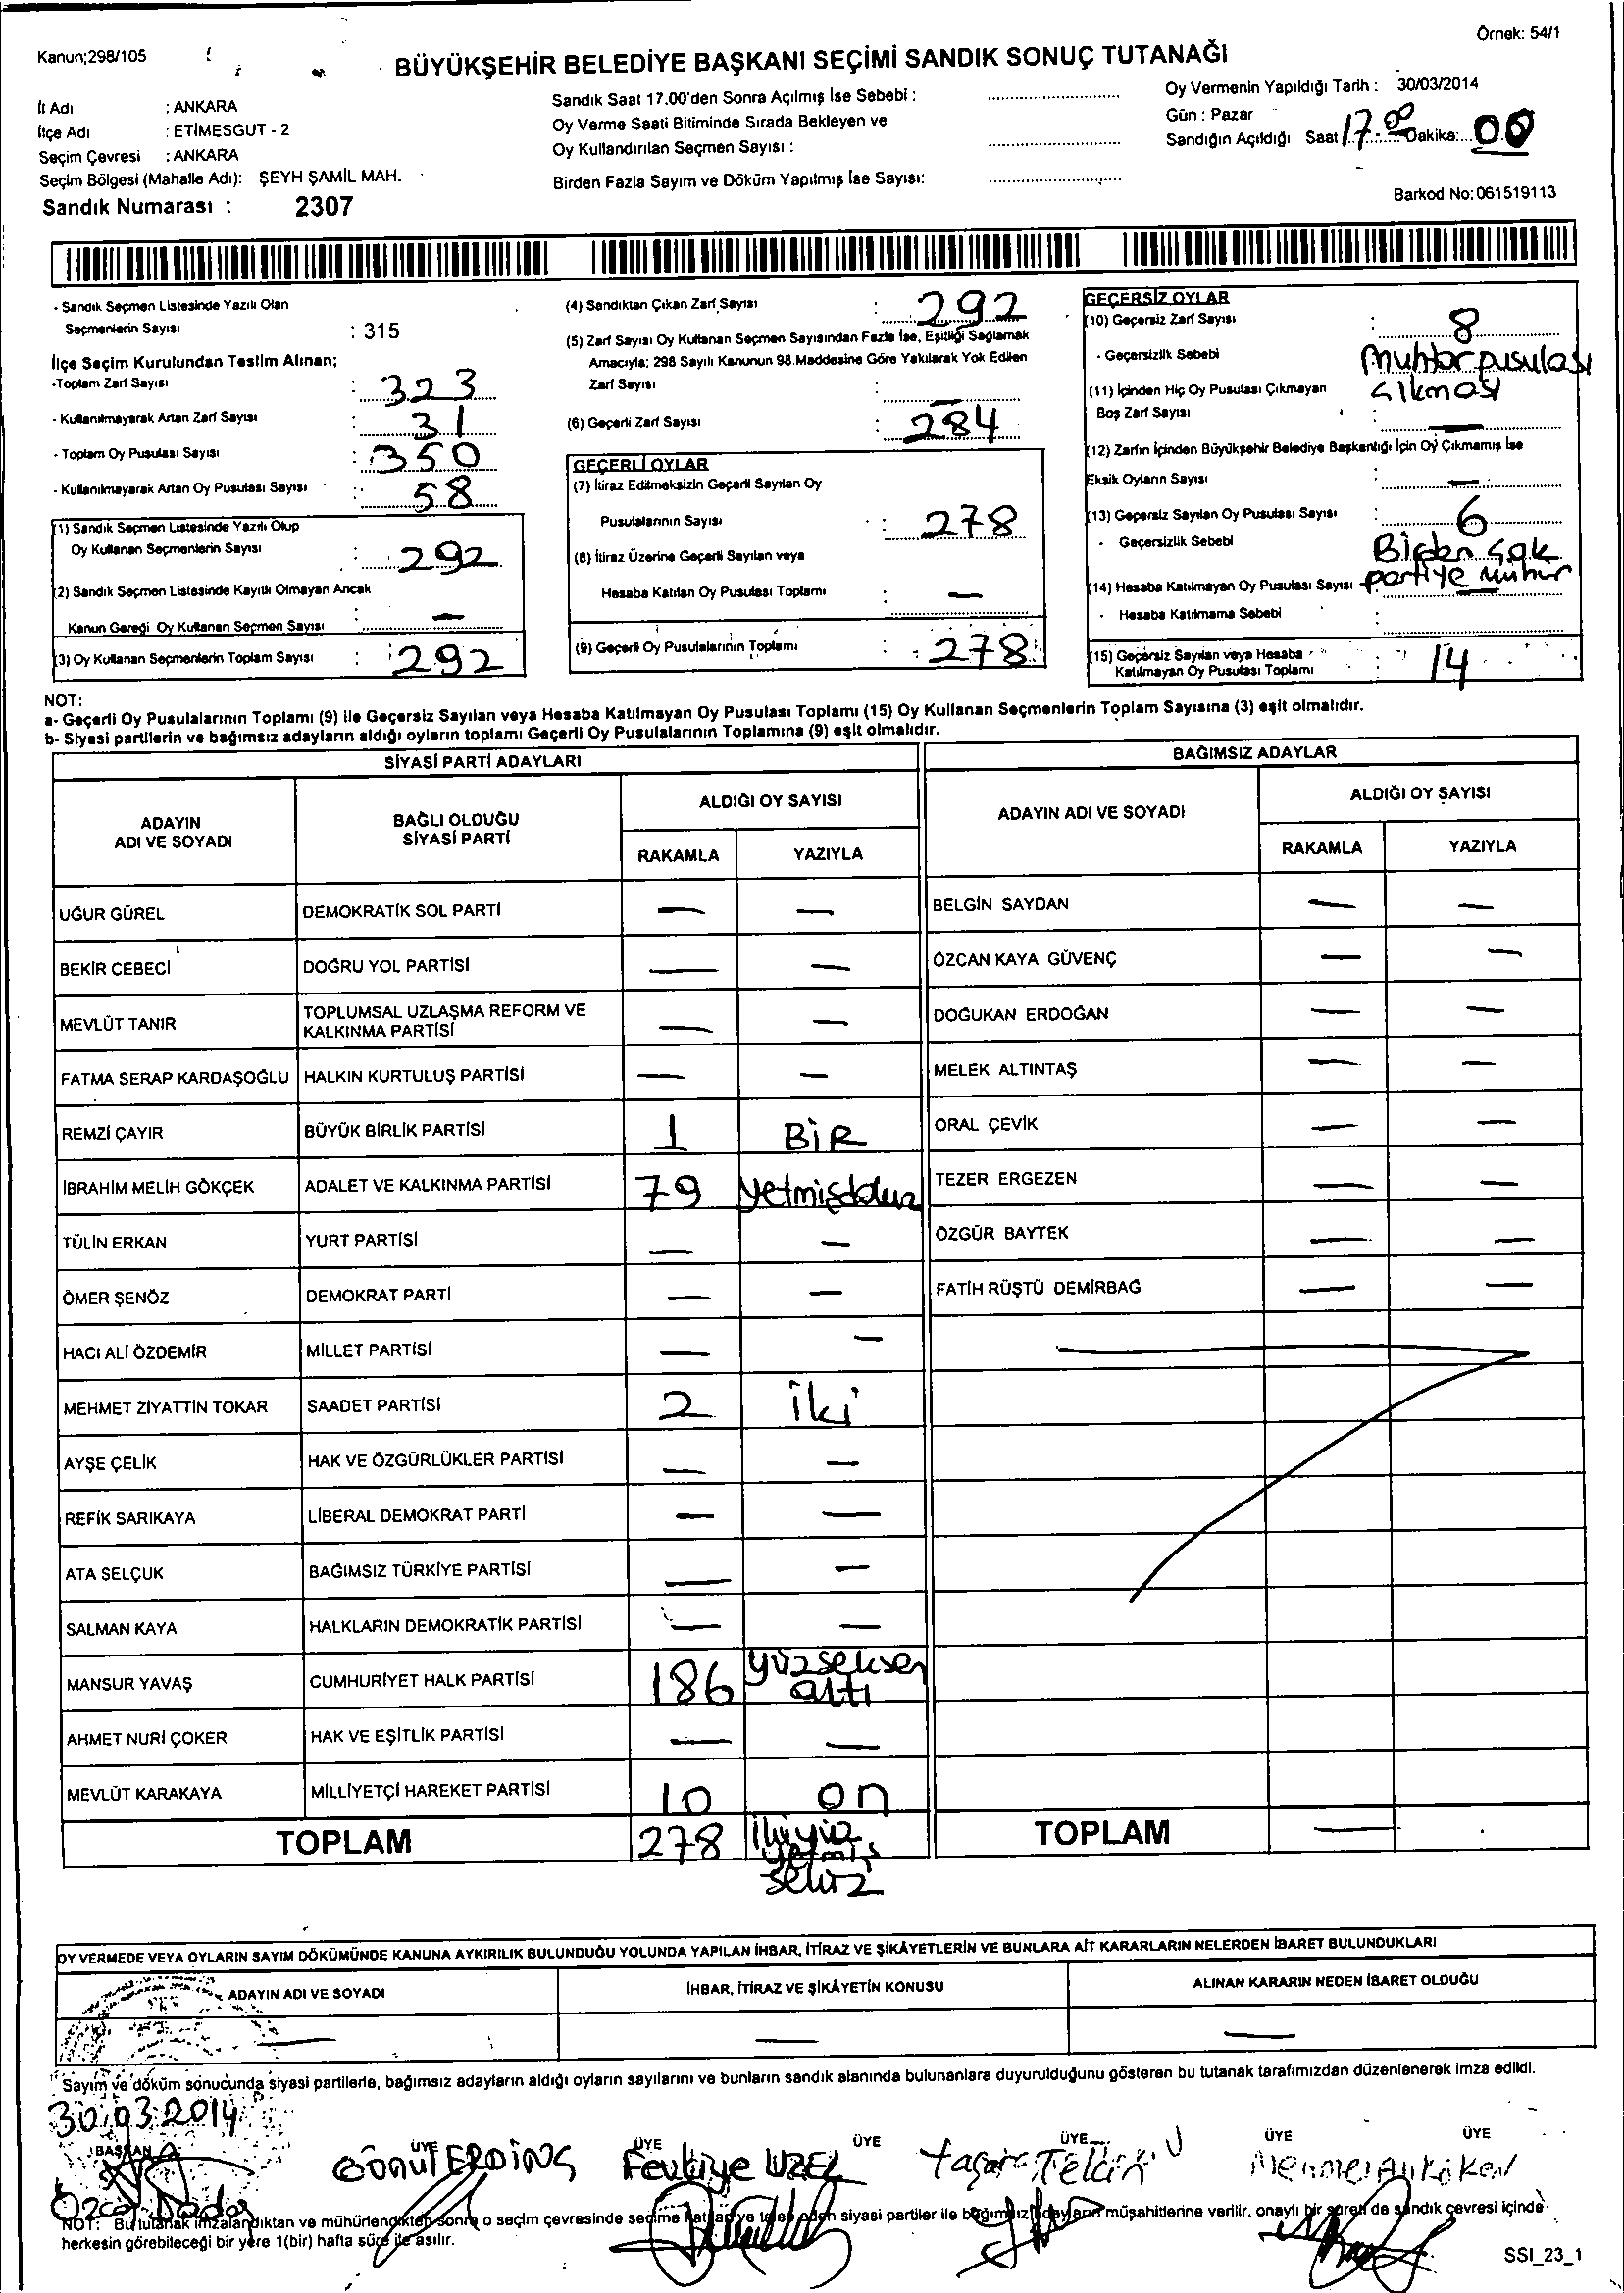 Örnek: 54/1
Kanun;298/105
BÜYÜKŞEHİR BELEDİYE BAŞKANI SEÇİMİ SANDIK SONUÇ TUTANAĞI
İl Adı : ANKARA
İlçe Adı : ETİMESGUT - 2
Seçim Çevresi : ANKARA
Seçim Bölgesi (Mahalle Adı): ŞEYH ŞAMİL MAH.
Sandık Numarası : 2307
Sandık Saat 17.00'den Sonra Açılmış İse Sebebi :
Oy Verme Saati Bitiminde Sırada Bekleyen ve
Oy Kullandırılan Seçmen Sayısı :
Birden Fazla Sayım ve Döküm Yapılmış İse Sayısı:
Oy Vermenin Yapıldığı Tarih : 30/03/2014
Gün : Pazar
Sandığın Açıldığı Saat 17:00 Dakika: 00
Barkod No: 061519113
- Sandık Seçmen Listesinde Yazılı Olan
Seçmenlerin Sayısı : 315
İlçe Seçim Kurulundan Teslim Alınan;
-Toplam Zarf Sayısı : 323
- Kullanılmayarak Artan Zarf Sayısı : 31
- Toplam Oy Pusulası Sayısı : 350
- Kullanılmayarak Artan Oy Pusulası Sayısı : 58
(1) Sandık Seçmen Listesinde Yazılı Olup
Oy Kullanan Seçmenlerin Sayısı : 292
(2) Sandık Seçmen Listesinde Kayıtlı Olmayan Ancak
Kanun Gereği Oy Kullanan Seçmen Sayısı : —
(3) Oy Kullanan Seçmenlerin Toplam Sayısı : 292
(4) Sandıktan Çıkan Zarf Sayısı : 292
(5) Zarf Sayısı Oy Kullanan Seçmen Sayısından Fazla İse, Eşitliği Sağlamak
Amacıyla; 298 Sayılı Kanunun 98.Maddesine Göre Yakılarak Yok Edilen
Zarf Sayısı : —
(6) Geçerli Zarf Sayısı : 284
GEÇERLİ OYLAR
(7) İtiraz Edilmeksizin Geçerli Sayılan Oy
Pusulalarının Sayısı : 278
(8) İtiraz Üzerine Geçerli Sayılan veya
Hesaba Katılan Oy Pusulası Toplamı : —
(9) Geçerli Oy Pusulalarının Toplamı : 278
GEÇERSİZ OYLAR
(10) Geçersiz Zarf Sayısı : 8
- Geçersizlik Sebebi Muhtar pusulası
çıkması
(11) İçinden Hiç Oy Pusulası Çıkmayan
Boş Zarf Sayısı : —
(12) Zarfın İçinden Büyükşehir Belediye Başkanlığı İçin Oy Çıkmamış İse
Eksik Oyların Sayısı : —
(13) Geçersiz Sayılan Oy Pusulası Sayısı : 6
- Geçersizlik Sebebi Birden çok
partiye mühür
(14) Hesaba Katılmayan Oy Pusulası Sayısı : —
- Hesaba Katılmama Sebebi :
(15) Geçersiz Sayılan veya Hesaba
Katılmayan Oy Pusulası Toplamı : 14
NOT:
a- Geçerli Oy Pusulalarının Toplamı (9) ile Geçersiz Sayılan veya Hesaba Katılmayan Oy Pusulası Toplamı (15) Oy Kullanan Seçmenlerin Toplam Sayısına (3) eşit olmalıdır.
b- Siyasi partilerin ve bağımsız adayların aldığı oyların toplamı Geçerli Oy Pusulalarının Toplamına (9) eşit olmalıdır.
SİYASİ PARTİ ADAYLARI
ADAYIN ADI VE SOYADI BAĞLI OLDUĞU SİYASİ PARTİ ALDIĞI OY SAYISI
RAKAMLA YAZIYLA
UĞUR GÜREL DEMOKRATİK SOL PARTİ — —
BEKİR CEBECİ DOĞRU YOL PARTİSİ — —
MEVLÜT TANIR TOPLUMSAL UZLAŞMA REFORM VE KALKINMA PARTİSİ — —
FATMA SERAP KARDAŞOĞLU HALKIN KURTULUŞ PARTİSİ — —
REMZİ ÇAYIR BÜYÜK BİRLİK PARTİSİ 1 BİR
İBRAHİM MELİH GÖKÇEK ADALET VE KALKINMA PARTİSİ 79 yetmişdokuz
TÜLİN ERKAN YURT PARTİSİ — —
ÖMER ŞENÖZ DEMOKRAT PARTİ — —
HACI ALİ ÖZDEMİR MİLLET PARTİSİ — —
MEHMET ZİYATTİN TOKAR SAADET PARTİSİ 2 iki
AYŞE ÇELİK HAK VE ÖZGÜRLÜKLER PARTİSİ — —
REFİK SARIKAYA LİBERAL DEMOKRAT PARTİ — —
ATA SELÇUK BAĞIMSIZ TÜRKİYE PARTİSİ — —
SALMAN KAYA HALKLARIN DEMOKRATİK PARTİSİ — —
MANSUR YAVAŞ CUMHURİYET HALK PARTİSİ 186 yüzseksen altı
AHMET NURİ ÇOKER HAK VE EŞİTLİK PARTİSİ — —
MEVLÜT KARAKAYA MİLLİYETÇİ HAREKET PARTİSİ 10 on
TOPLAM 278 ikiyüz yetmiş sekiz
BAĞIMSIZ ADAYLAR
ADAYIN ADI VE SOYADI ALDIĞI OY SAYISI
RAKAMLA YAZIYLA
BELGİN SAYDAN — —
ÖZCAN KAYA GÜVENÇ — —
DOĞUKAN ERDOĞAN — —
MELEK ALTINTAŞ — —
ORAL ÇEVİK — —
TEZER ERGEZEN — —
ÖZGÜR BAYTEK — —
FATİH RÜŞTÜ DEMİRBAĞ — —
TOPLAM —
OY VERMEDE VEYA OYLARIN SAYIM DÖKÜMÜNDE KANUNA AYKIRILIK BULUNDUĞU YOLUNDA YAPILAN İHBAR, İTİRAZ VE ŞİKÂYETLERİN VE BUNLARA AİT KARARLARIN NELERDEN İBARET BULUNDUKLARI
ADAYIN ADI VE SOYADI İHBAR, İTİRAZ VE ŞİKÂYETİN KONUSU ALINAN KARARIN NEDEN İBARET OLDUĞU
— — —
Sayım ve döküm sonucunda siyasi partilerle, bağımsız adayların aldığı oyların sayılarını ve bunların sandık alanında bulunanlara duyurulduğunu gösteren bu tutanak tarafımızdan düzenlenerek imza edildi.
30.03.2014
BAŞKAN ÜYE ÜYE ÜYE ÜYE ÜYE ÜYE
Gönül ERDİNÇ Fevkiye UZEL Yaşar
NOT: Bu tutanak imzalandıktan ve mühürlendikten sonra o seçim çevresinde seçime katılan ve talep eden siyasi partiler ile bağımsız adayların müşahitlerine verilir, onaylı bir sureti de sandık çevresi içinde
herkesin görebileceği bir yere 1(bir) hafta süre ile asılır.
SSI_23_1